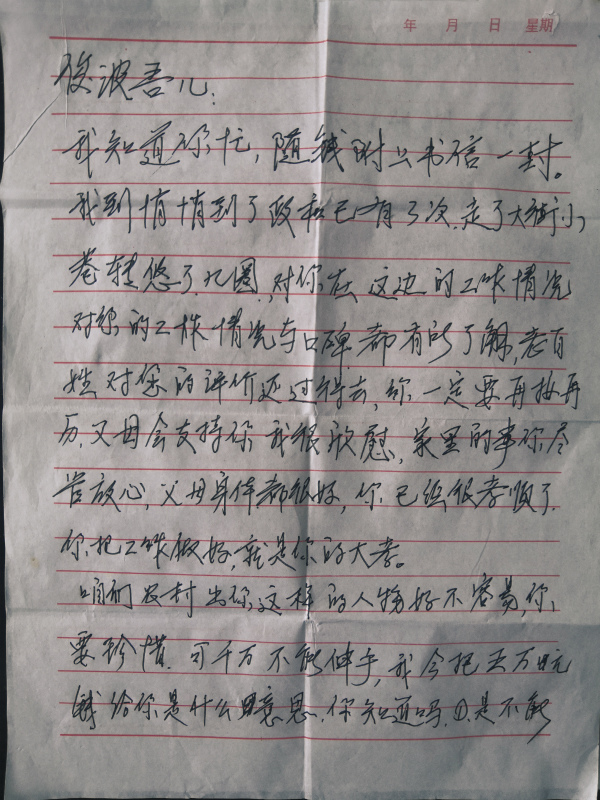 年 月 日 星期
俊波吾儿：
我知道你忙，随钱附上书信一封。
我到悄悄到了政和已有了次.走了大街小
巷转悠了几圈，对你在这边的工作情况
对你的工作情况与口碑都有所了解，老百
姓对你的评价还过得去，你一定要再接再
历.父母会支持你我很欣慰，家里的事你尽
管放心，父母身体都很好，你已经很孝顺了.
你把工作做好，就是你的大孝。
咱们农村出你这样的人物好不容易，你
要珍惜.可千万不能伸手，我今把五万元
钱给你是什么意思.你知道吗.①.是不能